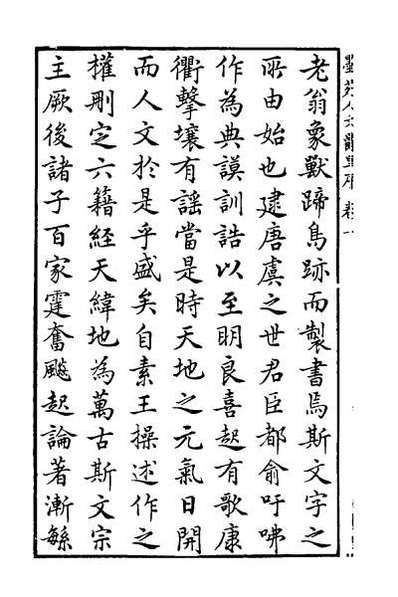 老翁象獸蹄鳥跡而製書焉斯文字之
所由始也逮唐虞之世君臣都俞吁咈
作為典謨訓誥以至明良喜起有歌康
衢擊壤有謡當是時天地之元氣日開
而人文於是乎盛矣自素王操述作之
權刪定六籍經天緯地為萬古斯文宗
主厥後諸子百家霆奮飇起論著漸繇